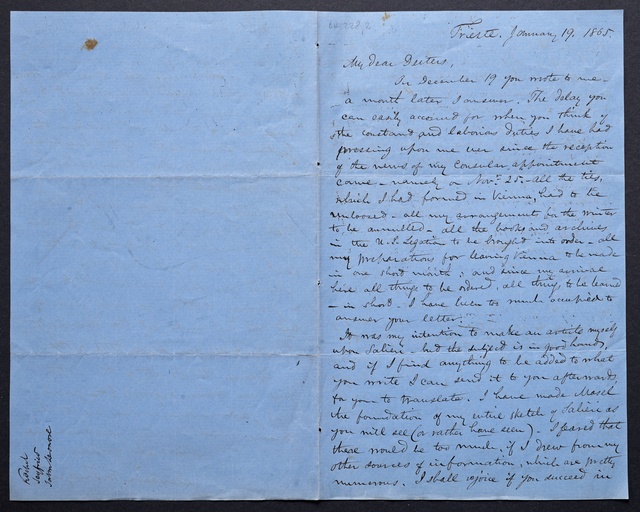 Trieste. January 19. 1865.
My dear Deiters,
In December 19 you wrote to me –
a month later I answer. The delay you
can easily account for when you think of
the constant and laborious duties I have had
pressing upon me ever since the reception
of the news of my Consular appointment
came – namely on Novr. 25. – all the ties,
which I had formed in Vienna, had to be
unloosed – all my arrangements for the winter
to be annulled – all the books and archives
in the U.S. Legation to be brought into order – all
my preparations for leaving Vienna to be made
in one short month; and since my arrival
here all things to be ordered, all things to be learned
– in short. I have been too much occupied to
answer your letter.
It was my intention to make an article myself
upon Salieri – but the subject is in good hands,
and if I find anything to be added to what
you write I can send it to you afterwards,
for you to translate. I have made Mosel
the foundation of my entire sketch of Salieri as
you will see (or rather have seen). I feared that
there would be too much, if I drew from my
other sources of information, which are pretty
numerous. I shall rejoice if you succeed in
Seyfried